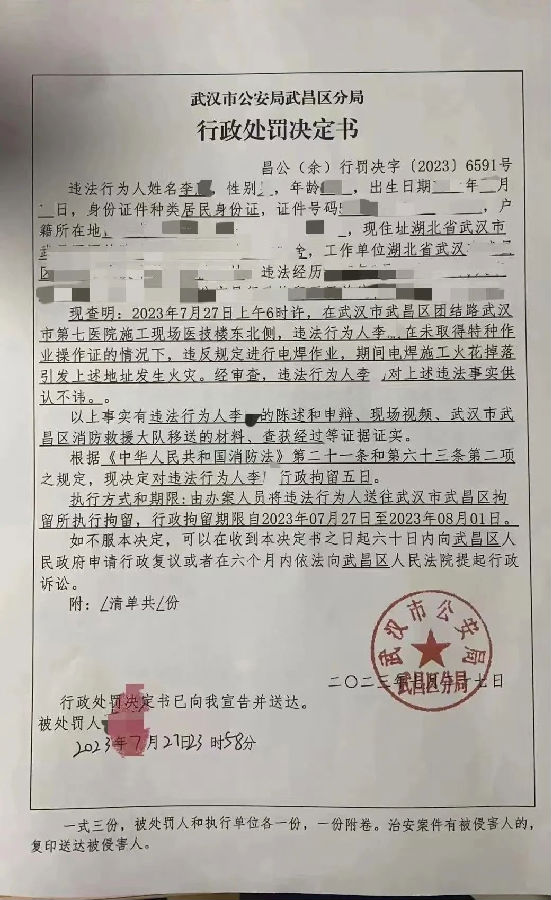 武汉市公安局武昌区分局
行政处罚决定书
昌公（余）行罚决字〔2023〕6591号
违法行为人姓名李，性别，年龄，出生日期年月
日，身份证件种类居民身份证，证件号码，户
籍所在地，现住址湖北省武汉市
，工作单位湖北省武汉
区违法经历
现查明：2023年7月27日上午6时许，在武汉市武昌区团结路武汉
市第七医院施工现场医技楼东北侧，违法行为人李在未取得特种作
业操作证的情况下，违反规定进行电焊作业，期间电焊施工火花掉落
引发上述地址发生火灾。经审查，违法行为人李对上述违法事实供
认不讳。。
以上事实有违法行为人李的陈述和申辩、现场视频、武汉市武
昌区消防救援大队移送的材料、查获经过等证据证实。
根据《中华人民共和国消防法》第二十一条和第六十三条第二项
之规定，现决定对违法行为人李行政拘留五日。
执行方式和期限：由办案人员将违法行为人送往武汉市武昌区拘
留所执行拘留，行政拘留期限自2023年07月27日至2023年08月01日。
如不服本决定，可以在收到本决定书之日起六十日内向武昌区人
民政府申请行政复议或者在六个月内依法向武昌区人民法院提起行政
诉讼。
附：/清单共/份
武汉市公安局
武昌区分局
二〇二三年七月二十七日
行政处罚决定书已向我宣告并送达。
被处罚人
2023年7月27日23时58分
一式三份，被处罚人和执行单位各一份，一份附卷。治安案件有被侵害人的，
复印送达被侵害人。